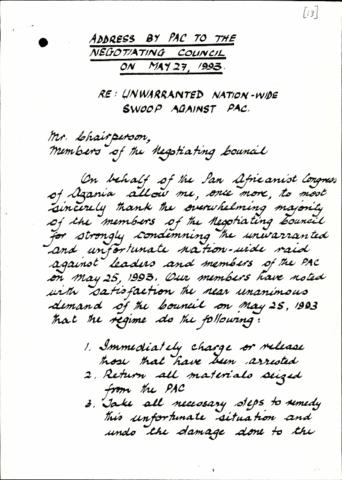 [13]
ADDRESS BY PAC TO THE
NEGOTIATING COUNCIL
ON MAY 27, 1993.
RE: UNWARRANTED NATION-WIDE
SWOOP AGAINST PAC.
Mr. Chairperson,
Members of the Negotiating Council
On behalf of the Pan Africanist Congress
of Azania allow me, once more, to most
sincerely thank the overwhelming majority
of the members of the Negotiating Council
for strongly condemning the unwarranted
and unfortunate nation-wide raid
against leaders and members of the PAC
on May 25, 1993. Our members have noted
with satisfaction the near unanimous
demand of the Council on May 25, 1993
that the regime do the following:
1. Immediately charge or release
those that have been arrested
2. Return all materials seized
from the PAC
3. Take all necessary steps to remedy
this unfortunate situation and
undo the damage done to the